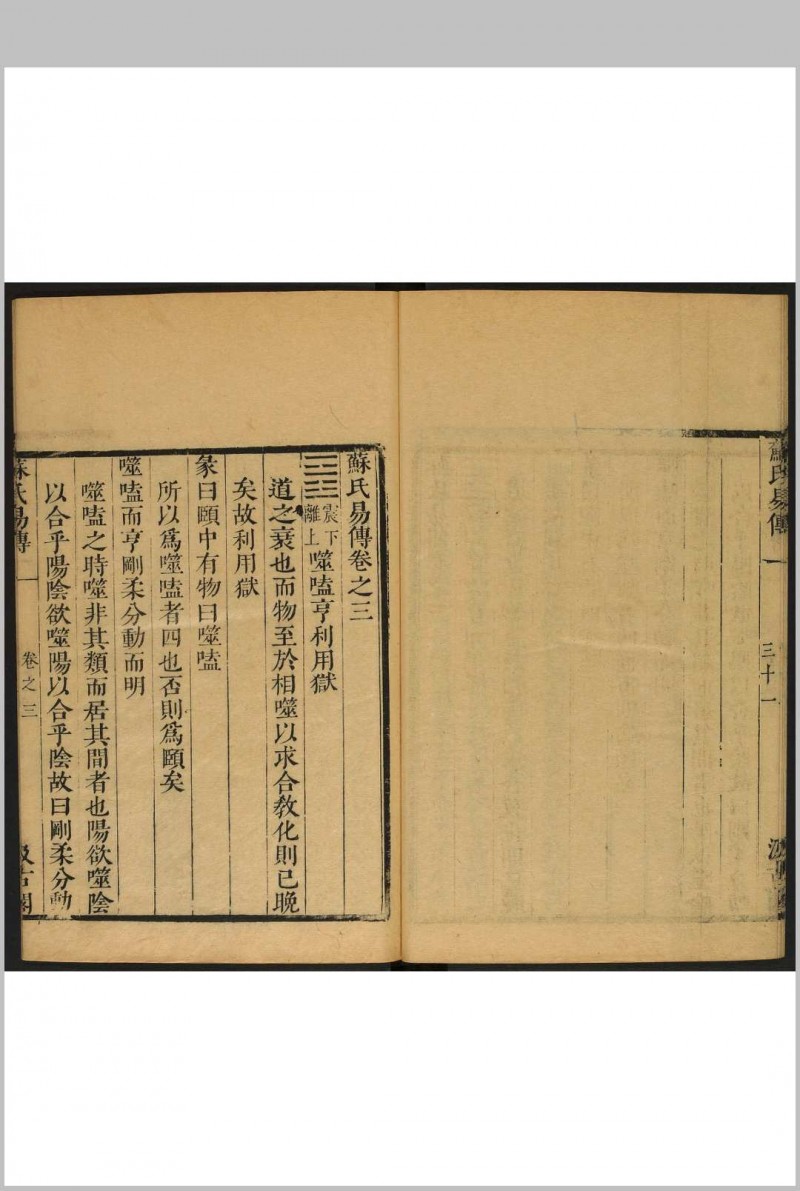 蘇氏易傳
三十一
蘇氏易傳卷之三
震下離上噬嗑亨利用獄
道之衰也而物至於相噬以求合教化則已晚
矣故利用獄
彖曰頤中有物曰噬嗑
所以爲噬嗑者四也否則爲頤矣
噬嗑而亨剛柔分動而明
噬嗑之時噬非其類而居其間者也陽欲噬陰
以合乎陽陰欲噬陽以合乎陰故曰剛柔分動
蘇氏易傳
卷之三
汲古閣